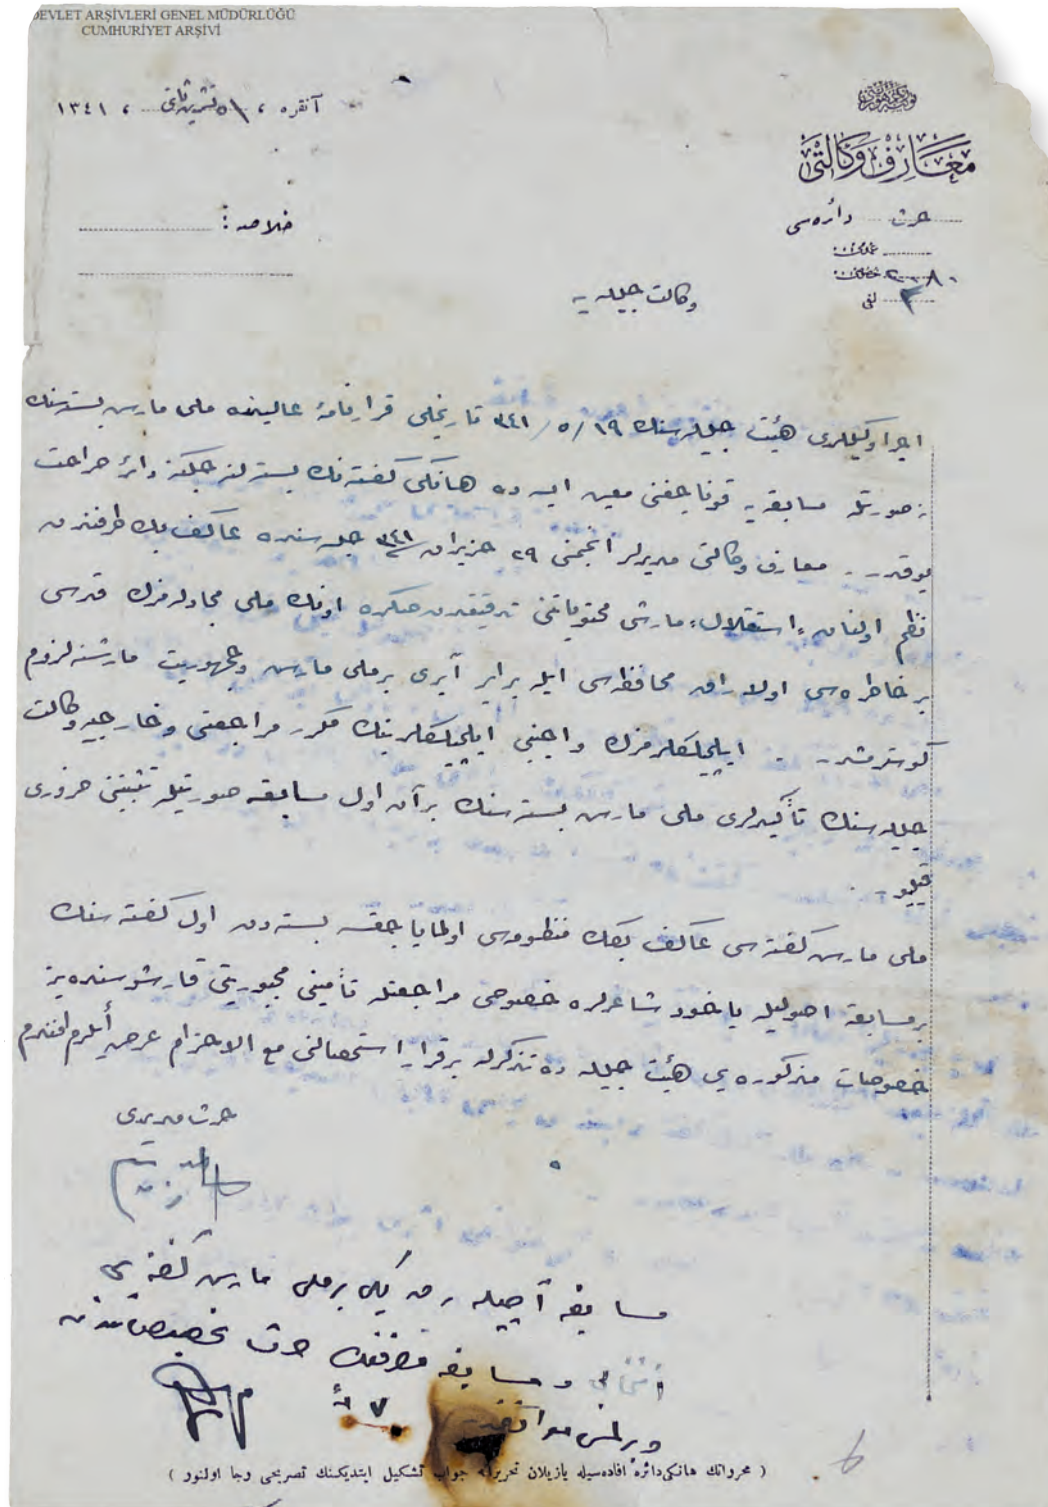 DEVLET ARŞİVLERİ GENEL MÜDÜRLÜĞÜ
CUMHURİYET ARŞİVİ
معارف وكالتی
حرث دائره‌سی
لفی
آنقره ، تشرين ثانی ، ١٣٤١
خلاصه :
وكالت جليله‌يه
اجرا وكيللری هيئت جليله‌سنك ١٩ / ٥ / ٣٤١ تاريخلی قرارنامهٔ عاليسنده ملی مارس بسته‌سنك
نه صورتله مسابقه‌يه قونا جغنی معين ايسه ده هانكی كفته‌نك بسته‌لنه‌جكنه دائر صراحت
يوقدر . معارف وكالتی مديرلر انجمنی ٢٩ حزيران ٣٤١ جلسه‌سنده عاكف بك طرفندن
نظم اولنان «استقلال» مارشی محتوياتنی تدقيقدن صكره اونك ملی مجادله‌مزك قدسی
بر خاطره‌سی اولارق محافظه‌سی ايله برابر آيری بر ملی مارس و جمهوريت مارشنه لزوم
كوسترمشدر . ايلچيلكلرمزك و اجنبی ايلچيلكلرينك مكرر مراجعتی و خارجيه وكالت
جليله‌سنك تأكيدلری ملی مارس بسته‌سنك بر آن اول مسابقه صورتيله تثبيتنی ضروری
قيليور .
ملی مارس كفته‌سی عاكف بكك منظومه‌سی اولمايا جقسه بسته‌دن اول كفته‌سنك
بر مسابقه اصوليله ياخود شاعرلره خصوصی مراجعتله تأمينی مجبوريتی قارشوسنده‌يز
خصوصات مذكوره‌يی هيئت جليله ده تذكرله بر قرار استحصالنی مع الاحترام عرض ايلرم افندم
حرث مديری
مسابقه آچيله‌رق يكی بر ملی مارس كفته‌سی
انتخابی و مسابقه مصرفنك حرث تخصيصاتندن
ويرلمسی موافقدر
( محرراتك هانكی دائره افاده‌سيله يازيلان تحريراته جواب تشكيل ايتديكنك تصريحی رجا اولنور )